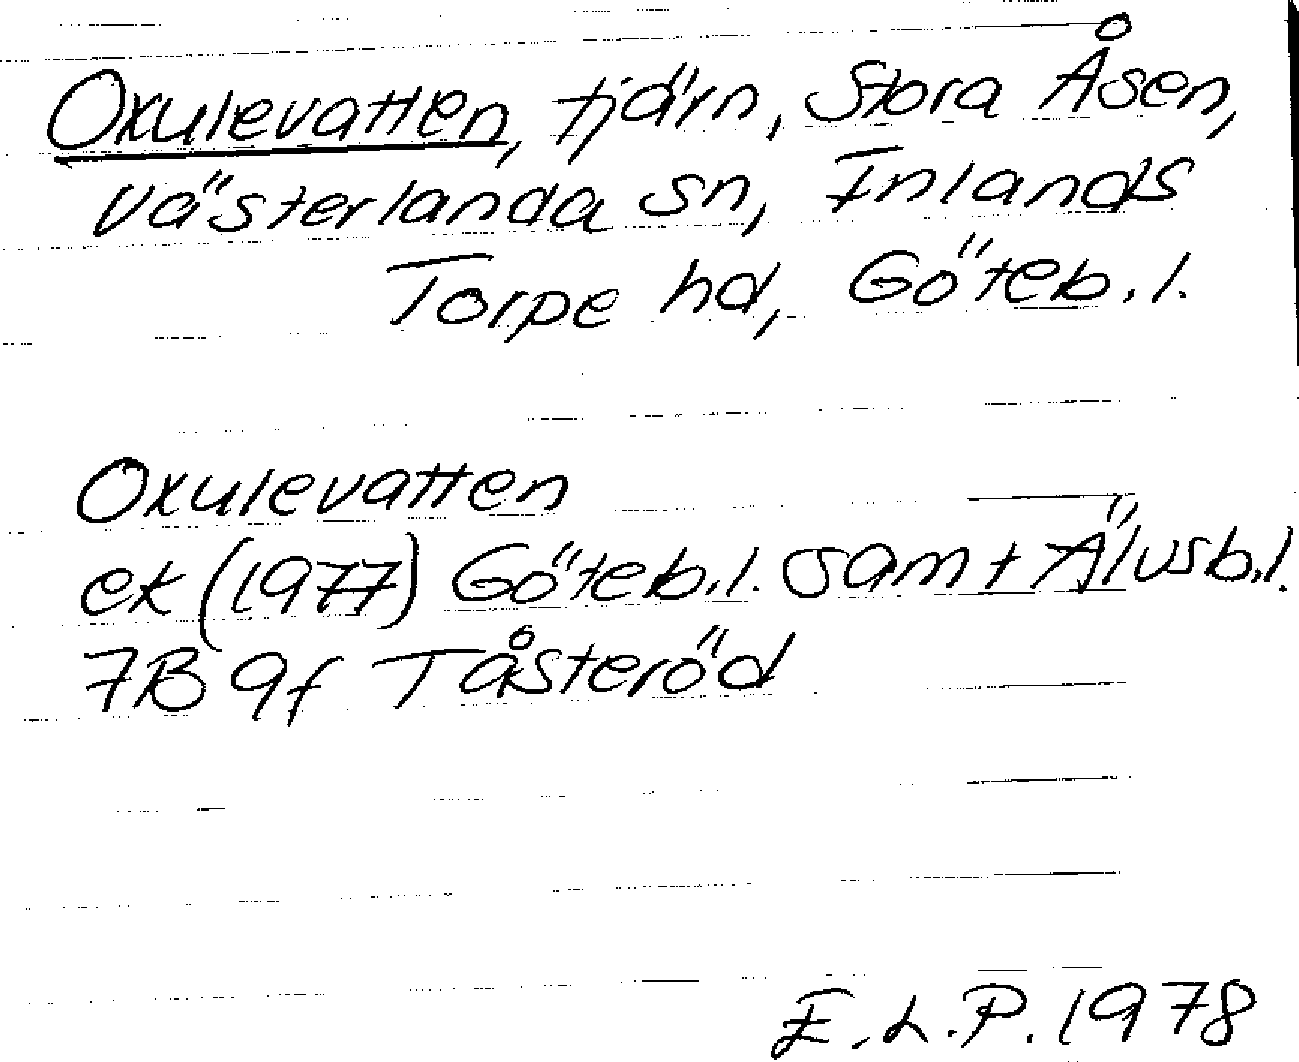 Oxulevatten, tjärn, Stora Åsen,
Västerlanda sn, Inlands
Torpe hd, Göteb. l.
Oxulevatten
ek (1977) Göteb. l. samt Älvsb. l.
7B 9f Tåsteröd
E. L. P. 1978